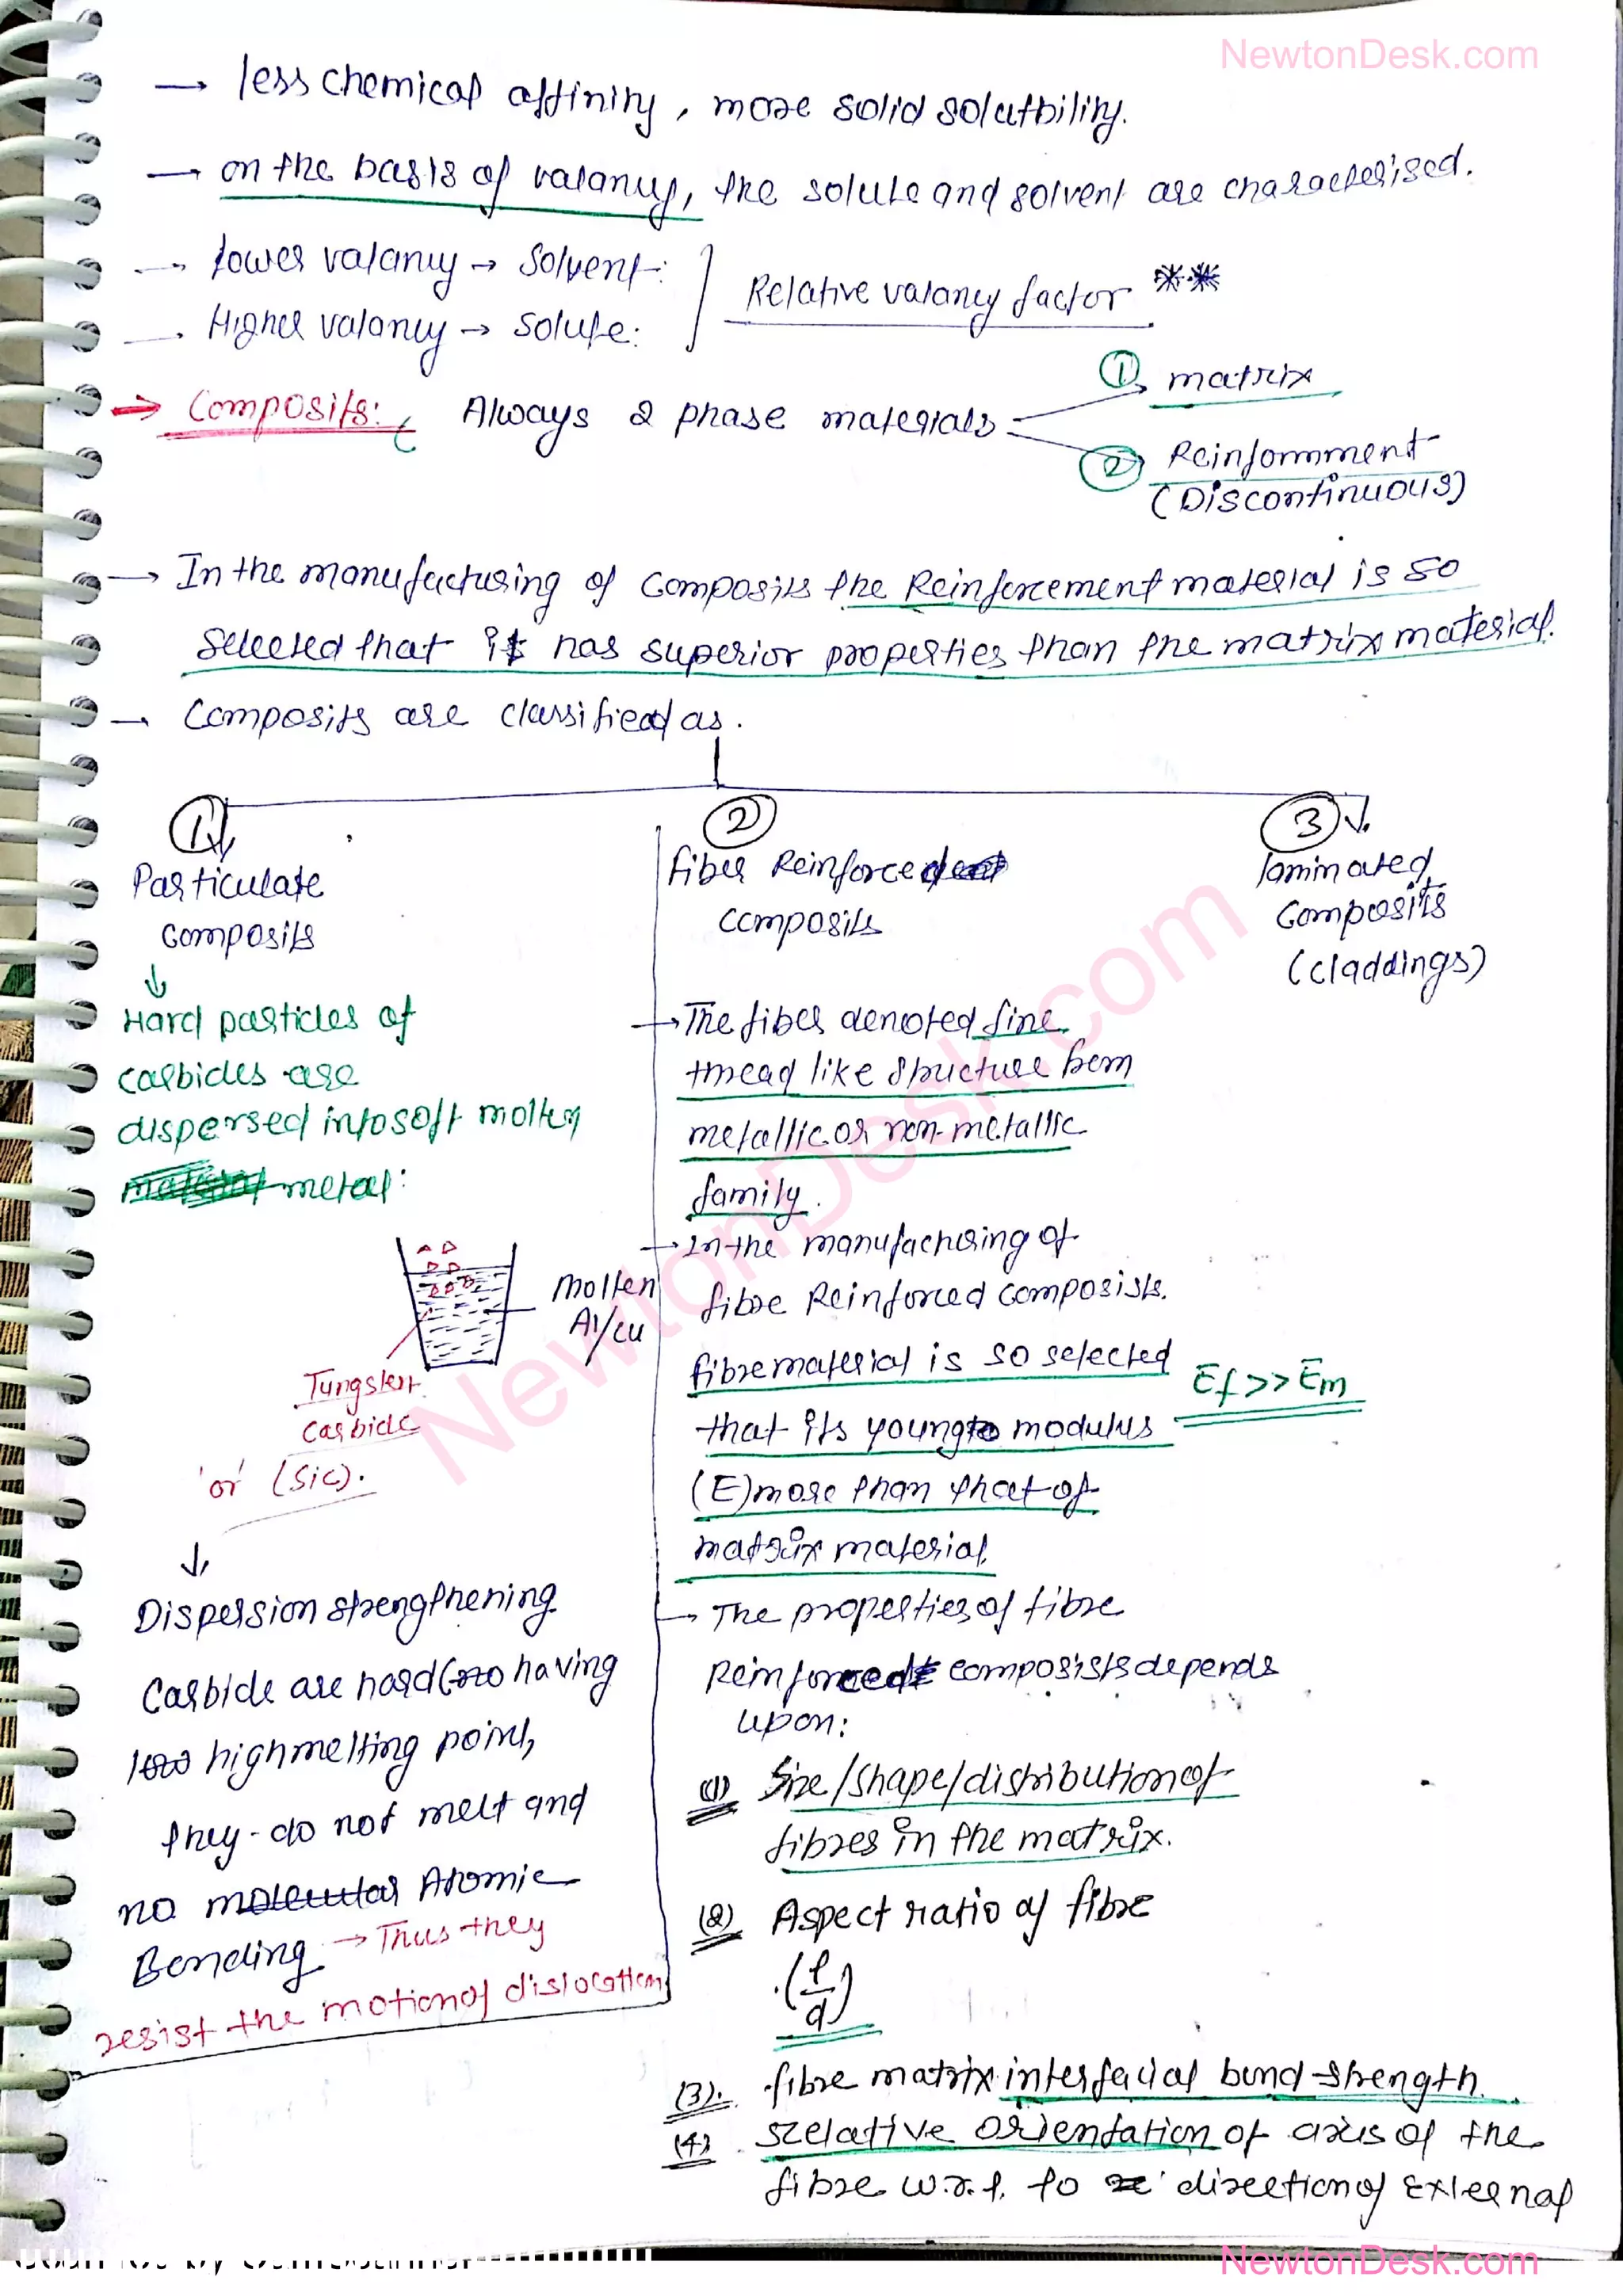 NewtonDesk.com
→ less chemical affinity, more solid solutbility.
→ on the basis of valancy, the solute and solvent are characterised.
→ lower valancy → Solvent:
→ Higher valancy → Solute:
Relative valancy factor **
→ Composits: Always 2 phase materials
① matrix
② Reinfomment
(Discontinuous)
→ In the manufacturing of composits the Reinforcement material is so
selected that it has superior properties than the matrix material.
→ Composits are classified as.
①
Particulate
composits
↓
Hard particles of
carbides are
dispersed into soft molten
metal:
Molten
Al/cu
Tungsten
carbide
'or' (Sic).
↓
Dispersion strengthening
Carbide are hard having
high melting point,
they do not melt and
no Atomic
Bonding → Thus they
resist the motion of dislocation
②
fiber Reinforced
composits
→ The fiber denoted fine
thread like structure from
metallic or non-metallic
family.
→ In the manufacturing of
fibre Reinforced composists.
fibre material is so selected
that its youngs modulus
Ef >> Em
(E) more than that of
matrix material.
→ The properties of fibre
Reinforced composists depends
upon:
(1) Size/shape/distribution of
fibres in the matrix.
(2) Aspect ratio of fibre
(l/d)
(3). fibre matrix interfacial bond strength.
(4) relative orientation of axis of the
fibre w.r.t. to direction of external
③
laminated
Composits
(claddings)
NewtonDesk.com
NewtonDesk.com